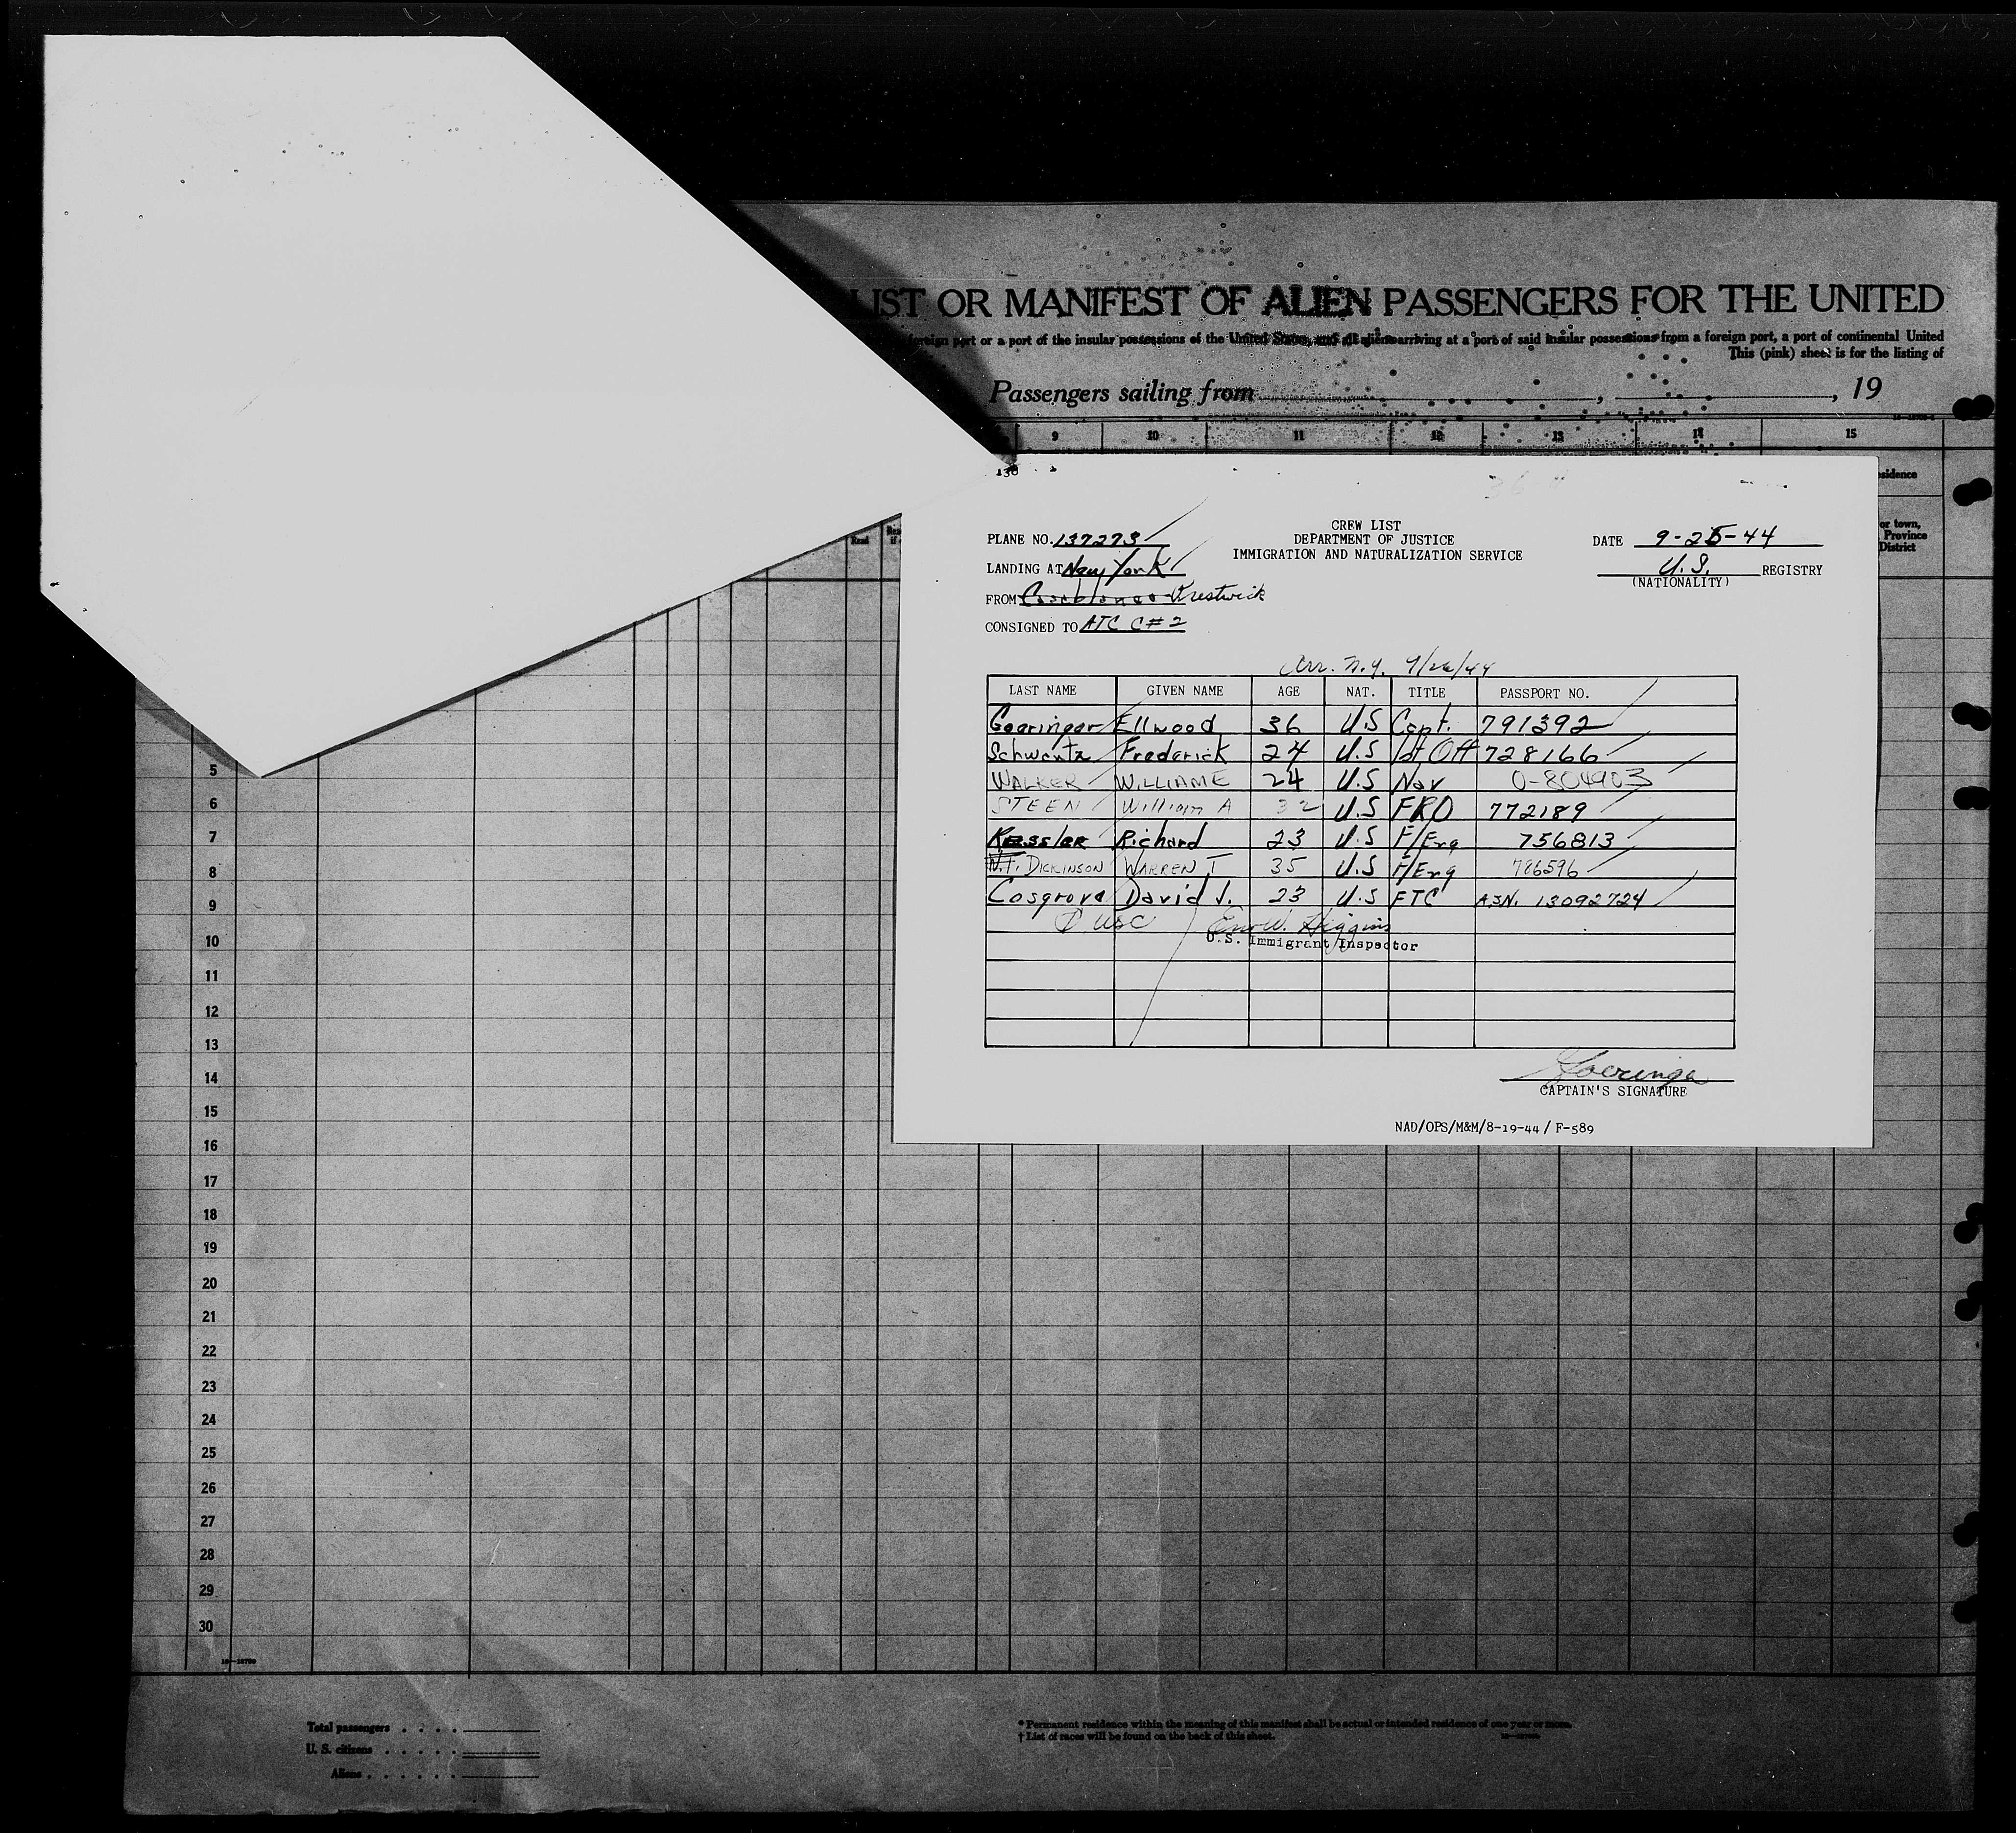 LIST OR MANIFEST OF ALIEN PASSENGERS FOR THE UNITED
foreign port or a port of the insular possessions of the United States, and all aliens arriving at a port of said insular possessions from a foreign port, a port of continental United
This (pink) sheet is for the listing of
Passengers sailing from , , 19
9 10 11 12 13 14 15
CREW LIST
DEPARTMENT OF JUSTICE
IMMIGRATION AND NATURALIZATION SERVICE
PLANE NO. 137273
LANDING AT New York
FROM Casablanca Prestwick
CONSIGNED TO ATC C#2
DATE 9-25-44
U.S. REGISTRY
(NATIONALITY)
Arr. N.Y. 9/26/44
LAST NAME GIVEN NAME AGE NAT. TITLE PASSPORT NO.
Gearinger Ellwood 36 U.S Capt. 791392
Schwartz Frederick 24 U.S 1st Off 728166
WALKER WILLIAM E 24 U.S Nav O-804903
STEEN William A 32 U.S FRO 772189
Kessler Richard 23 U.S F/Eng 756813
DICKINSON WARREN T 35 U.S F/Eng 786596
Cosgrove David J. 23 U.S FTC ASN. 13092724
USC Higgins
U.S. Immigrant Inspector
CAPTAIN'S SIGNATURE
NAD/OPS/M&M/8-19-44 / F-589
sidence
or town,
Province
District
Read
5
6
7
8
9
10
11
12
13
14
15
16
17
18
19
20
21
22
23
24
25
26
27
28
29
30
Total passengers
U. S. citizens
Aliens
* Permanent residence within the meaning of this manifest shall be actual or intended residence of one year or more.
† List of races will be found on the back of this sheet.